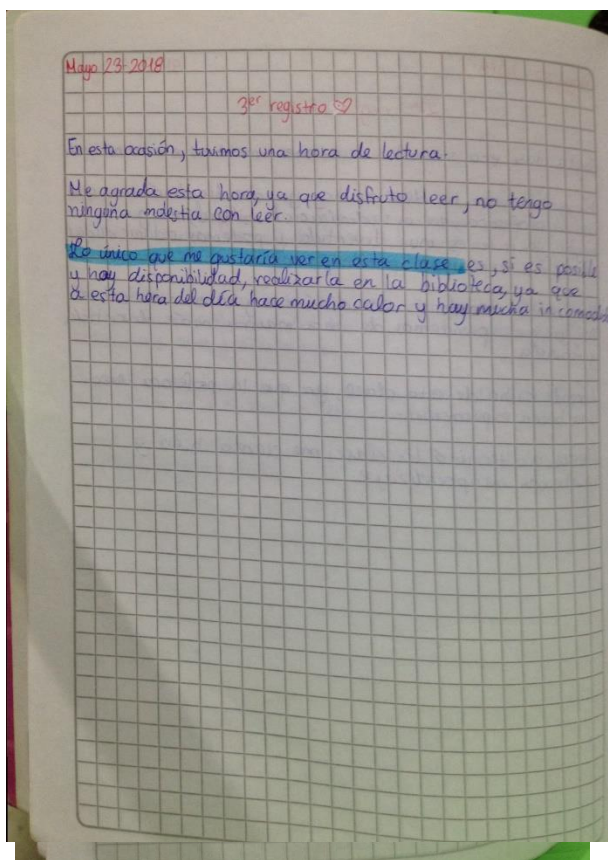 Mayo 23-2018
3er registro
En esta ocasión, tuvimos una hora de lectura.
Me agrada esta hora, ya que disfruto leer, no tengo
ninguna molestia con leer.
Lo único que me gustaría ver en esta clase es, si es posible
y hay disponibilidad, realizarla en la biblioteca, ya que
a esta hora del día hace mucho calor y hay mucha